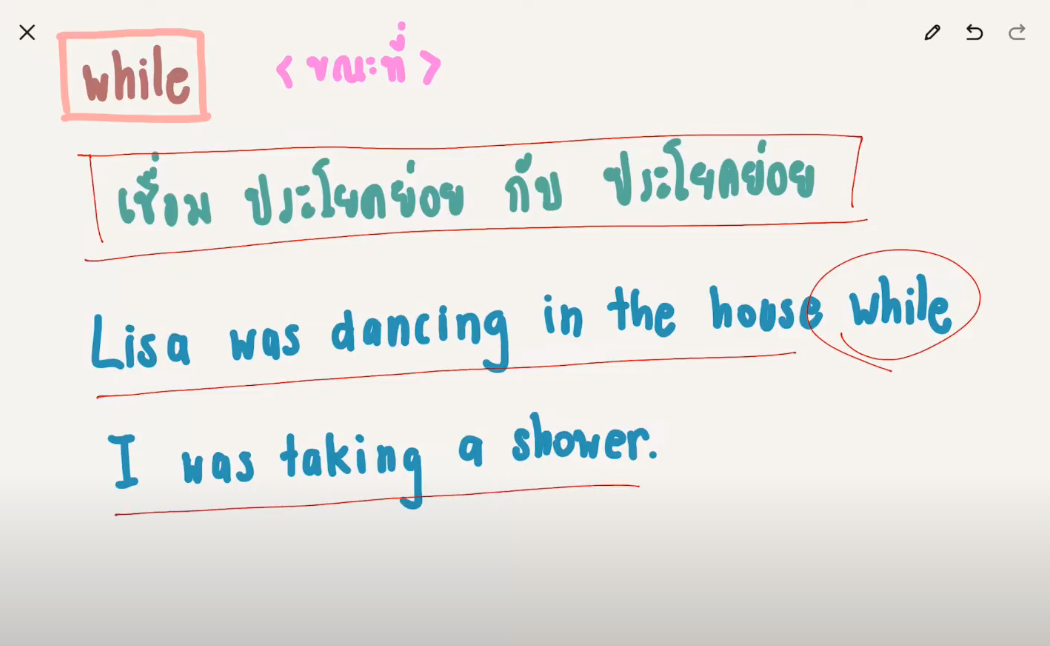 while < ขณะที่ >
เชื่อม ประโยคย่อย กับ ประโยคย่อย
Lisa was dancing in the house while
I was taking a shower.